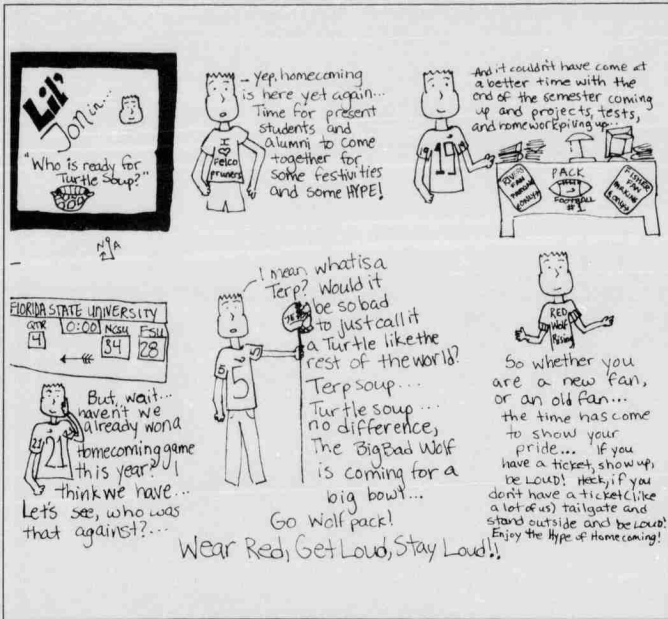 Lil'
Jon in...
"Who is ready for
Turtle Soup?"
- Yep, homecoming
is here yet again...
Time for present
students and
alumni to come
together for
some festivities
and some HYPE!
I
Felco
pruners
And it couldn't have come at
a better time with the
end of the semester coming
up and projects, tests,
and homework piling up...
PACK
FOOTBALL
#1
RIVERS
FAN
PARKING
ONLY
FISHER
FAN
PARKING
ONLY
FLORIDA STATE UNIVERSITY
QTR
4
0:00
NCSU
34
FSU
28
But, wait...
haven't we
already won a
homecoming game
this year? I
think we have...
Let's see, who was
that against?...
21
I mean what is a
Terp? Would it
be so bad
to just call it
a Turtle like the
rest of the world?
Terp soup...
Turtle soup...
no difference,
The Big Bad Wolf
is coming for a
big bowl...
Go Wolfpack!
5
RED
Wolf
Rising
So whether you
are a new fan,
or an old fan...
the time has come
to show your
pride... If you
have a ticket, show up,
be LOUD! Heck, if you
don't have a ticket (like
a lot of us) tailgate and
stand outside and be LOUD!
Enjoy the Hype of Homecoming!
Wear Red, Get Loud, Stay Loud!!